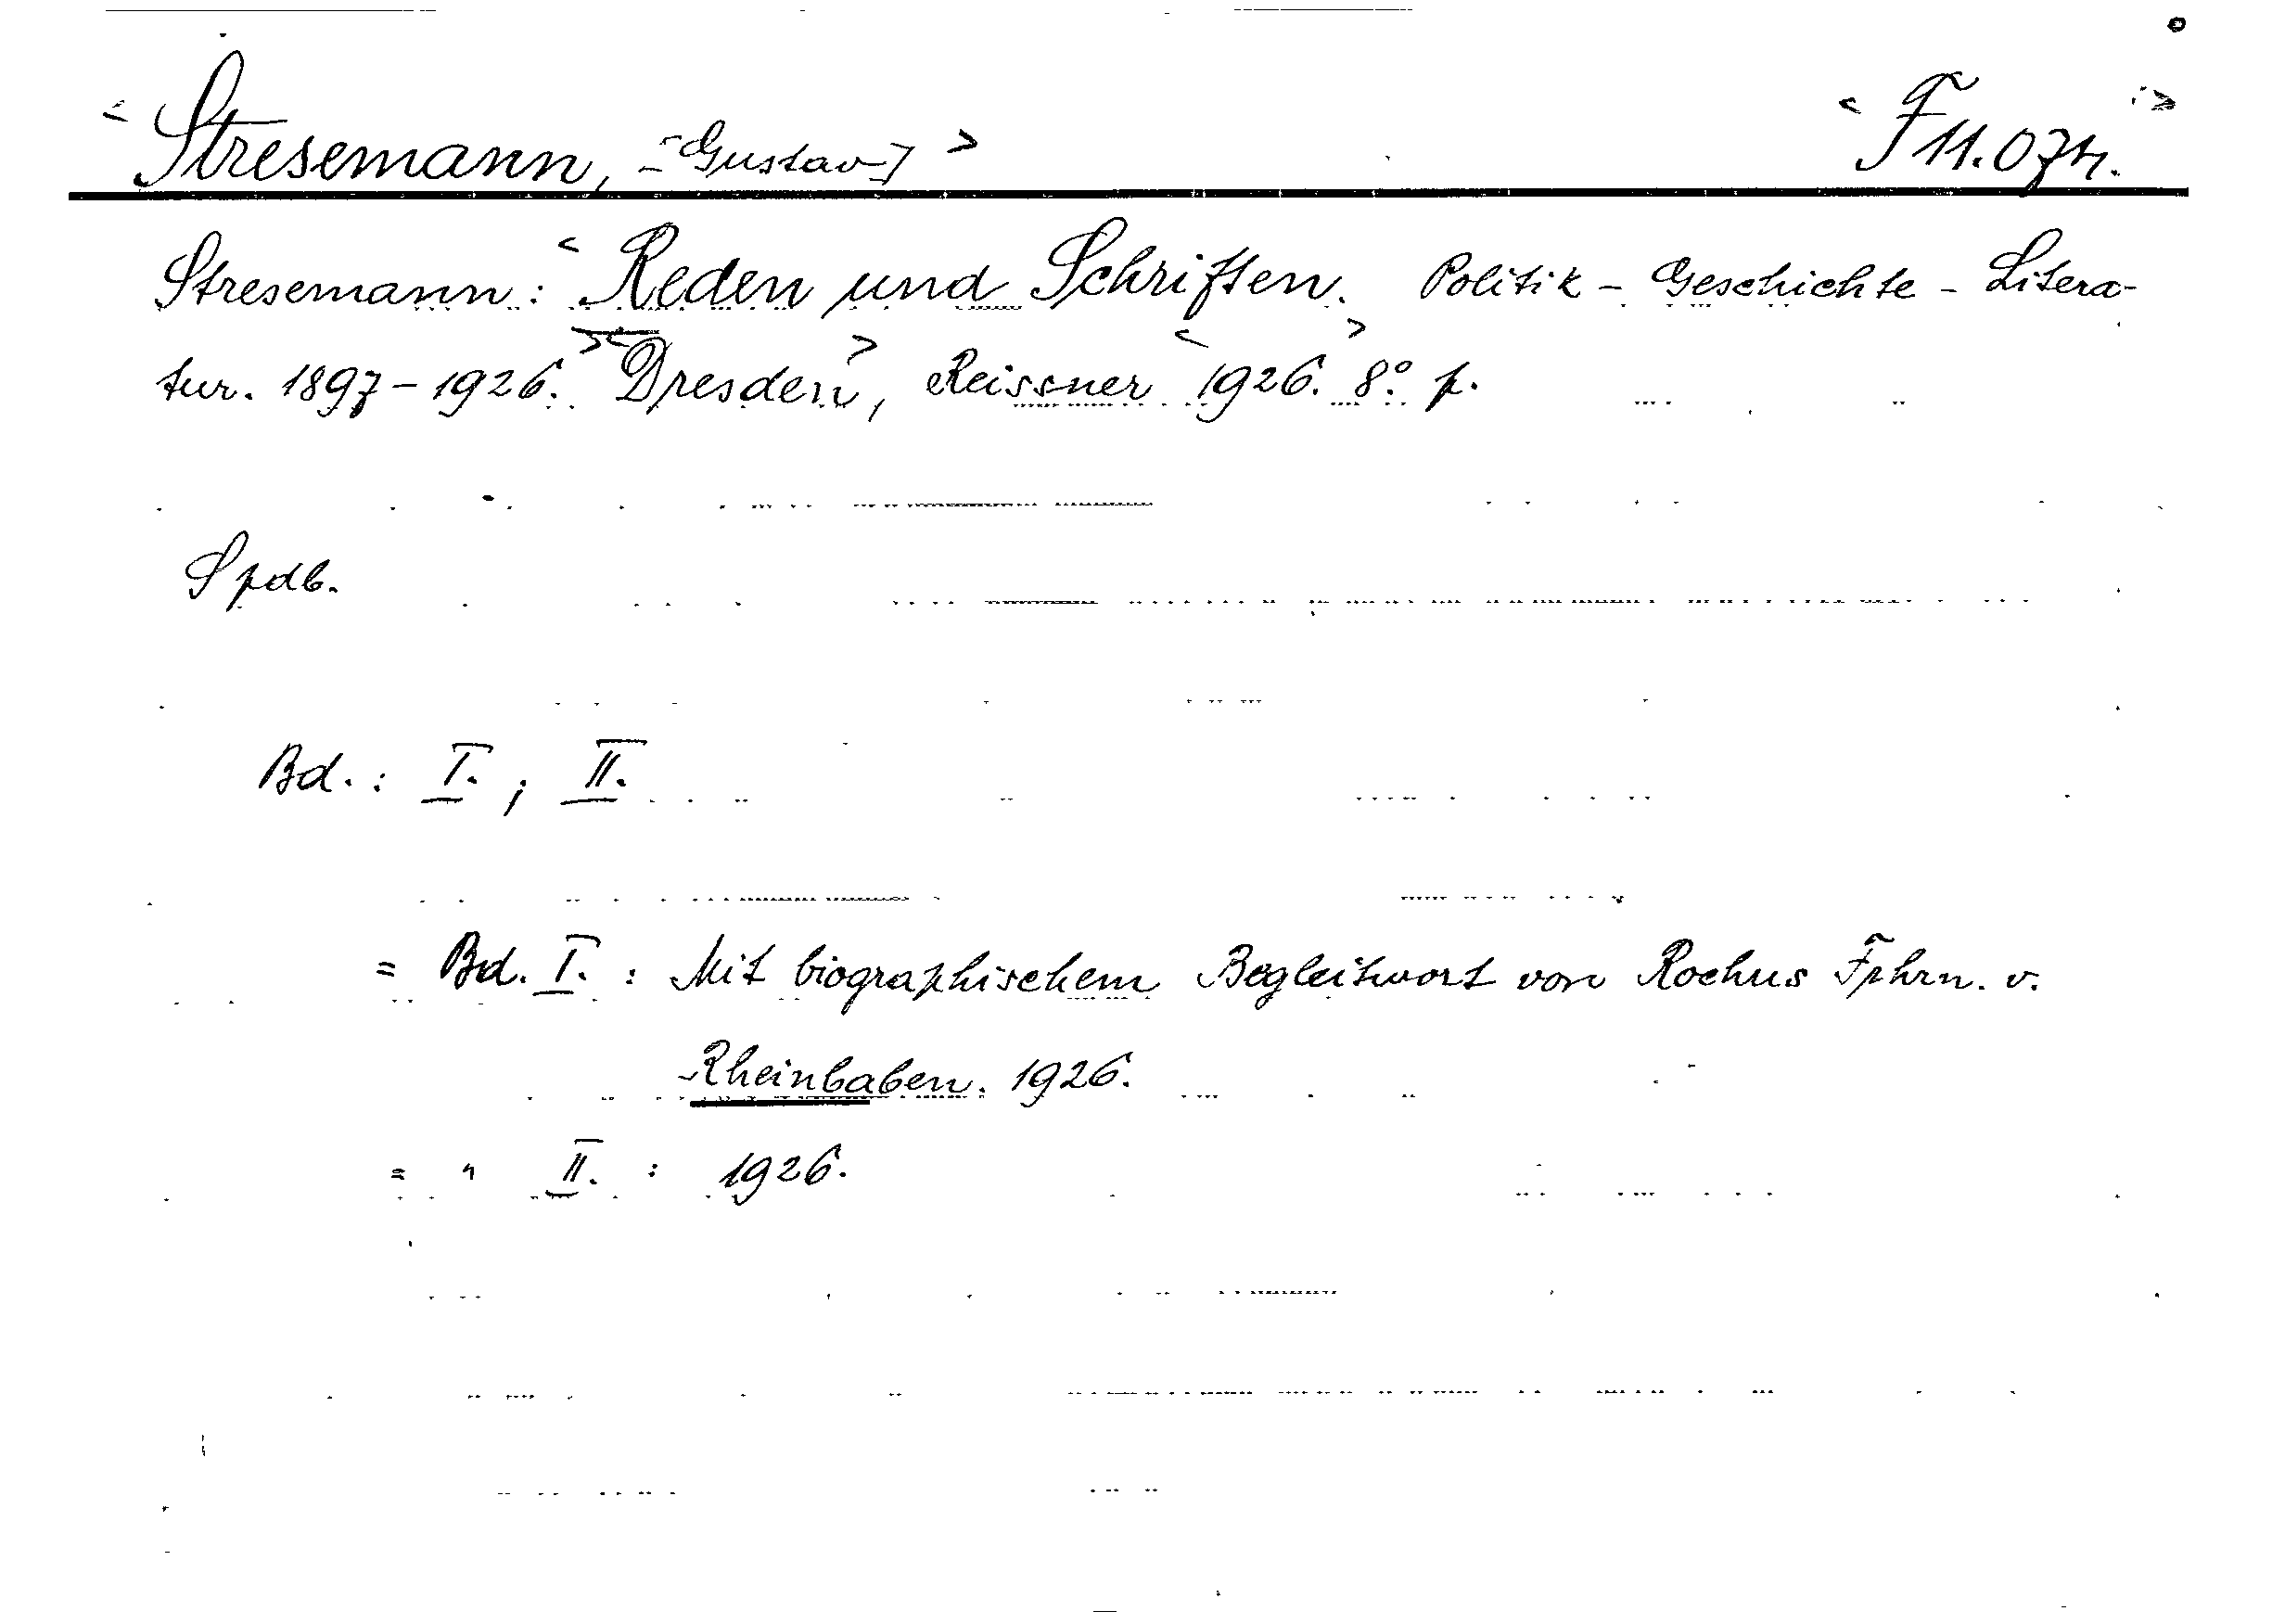 < Stresemann, [Gustav] > < F 11.074. >
Stresemann: < Reden und Schriften. Politik - Geschichte - Litera-
tur. 1897-1926. >< Dresden >, Reissner < 1926. > 8° p.
Spdb.
Bd.: I. ; II.
= Bd. I. : Mit biographischem Begleitwort von Rochus Frhrn. v.
Rheinbaben. 1926.
= " II. : 1926.